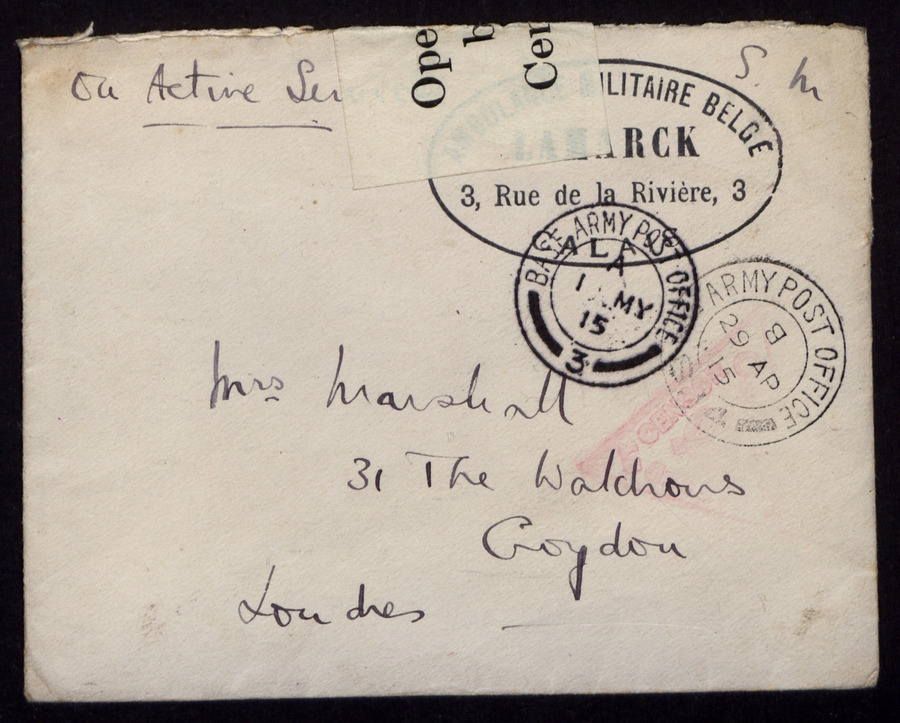 On Active Ser
S. M
Ope
b
Cen
AMBULANCE MILITAIRE BELGE
LAMARCK
3, Rue de la Rivière, 3
BASE ARMY POST OFFICE
ALA
A
1 MY
15
3
ARMY POST OFFICE
B
29 AP
15
Mrs Marshall
31 The Waldrons
Croydon
Londres